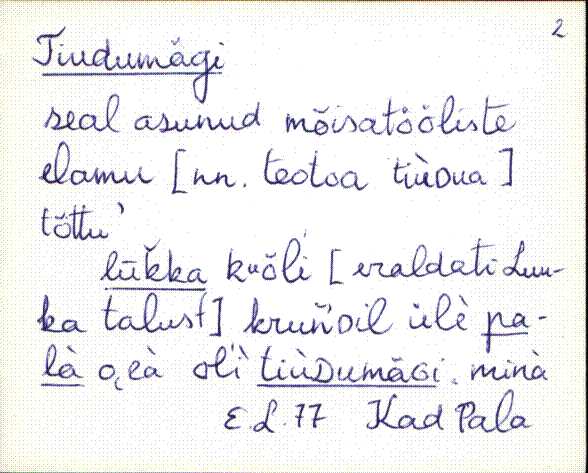 2
Tiudumägi
seal asunud mõisatööliste
elamu [nn. teotoa tiùDua]
tõttu'
lūkka kuõlì [eraldati Luu-
ka talust] kruǹDil ülè pa-
là o̬eà olì tiùDumäGi. minà
E.L.77 Kad Pala